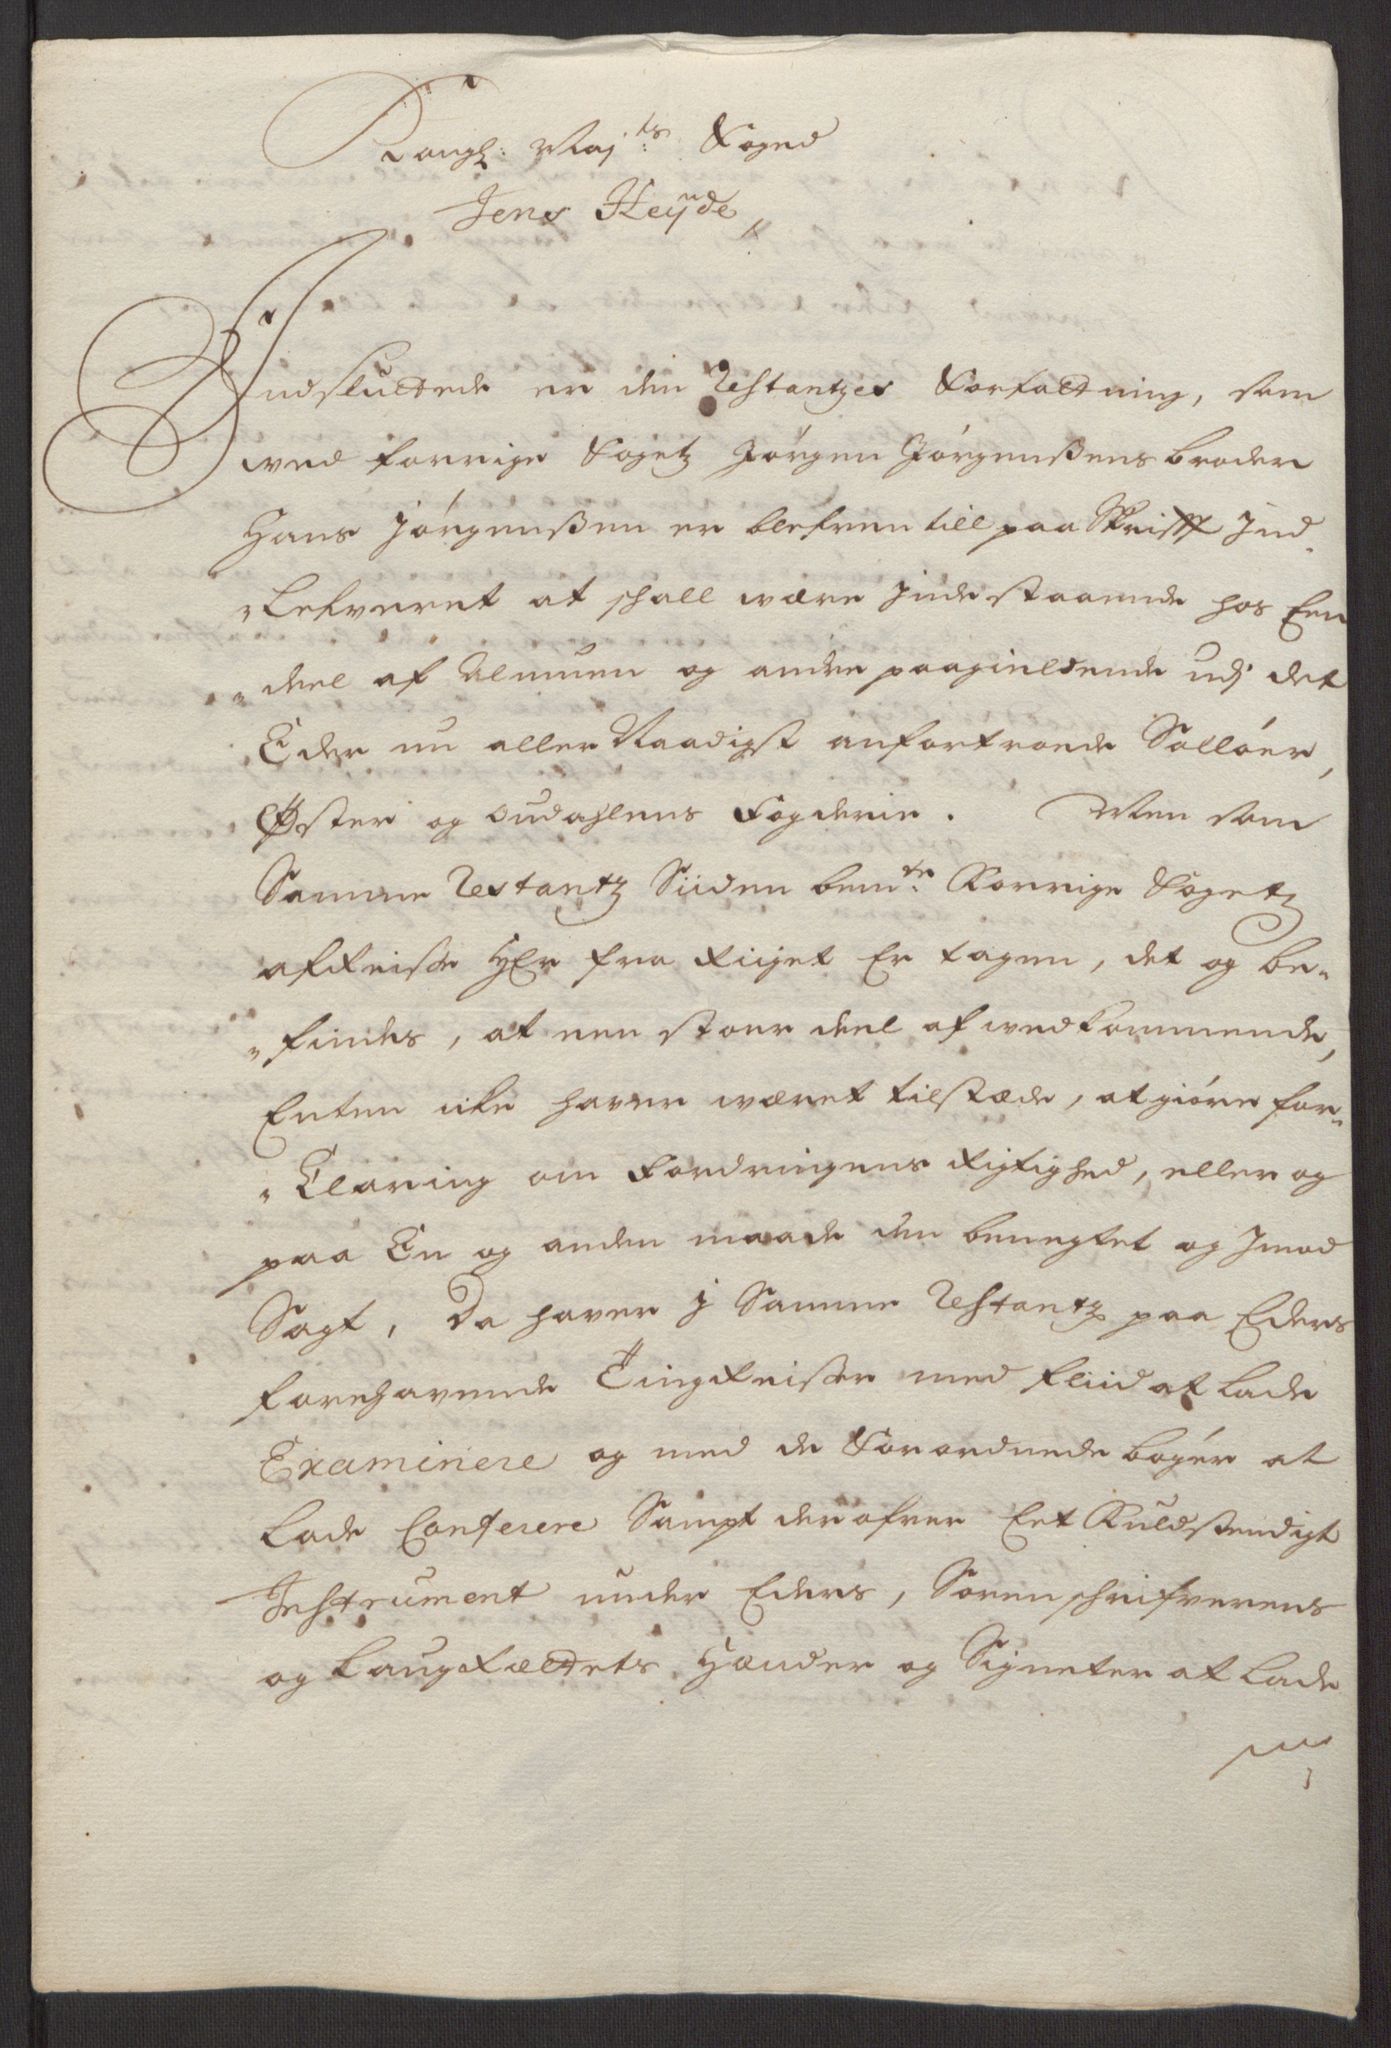 Kongl: Maj:ts Foged
Jens Heyde,
Indsluttede er den Restantzes Forfattning, som
ved forrige Fogetz Jørgen Jørgenßens broder
Hans Jørgenßen er blefven till paa Skrifft Ind-
"lefveret at schall være Indestaaende hos Een
"deel af Almuen og andre paagieldende udj det
Eder nu aller Naadigst anfortroede Sollöer,
Øster og Oudahlens Fogderie. Men som
Samme Restantz Siiden bem:te Forrige Fogetz
afReise Her fra Riiget Er tagen, det og be-
"findes, at een stoer deel af vedkommende,
Enten icke haver været tilstæde, at giøre for-
"Claring om Fordringens Rigtighed, eller og
paa En og anden maade den benegtet og Imod
Sagt, Da haver I Samme Restantz paa Eders
forehavende TingReise med fliid at lade
Examinere og med de Forordnede bøger at
lade Conferere Sampt derofver Eet Fuldstendigt
Instrument under Eders, Sorenschrifverens
og LaugRættets Hænder og Signeter at lade